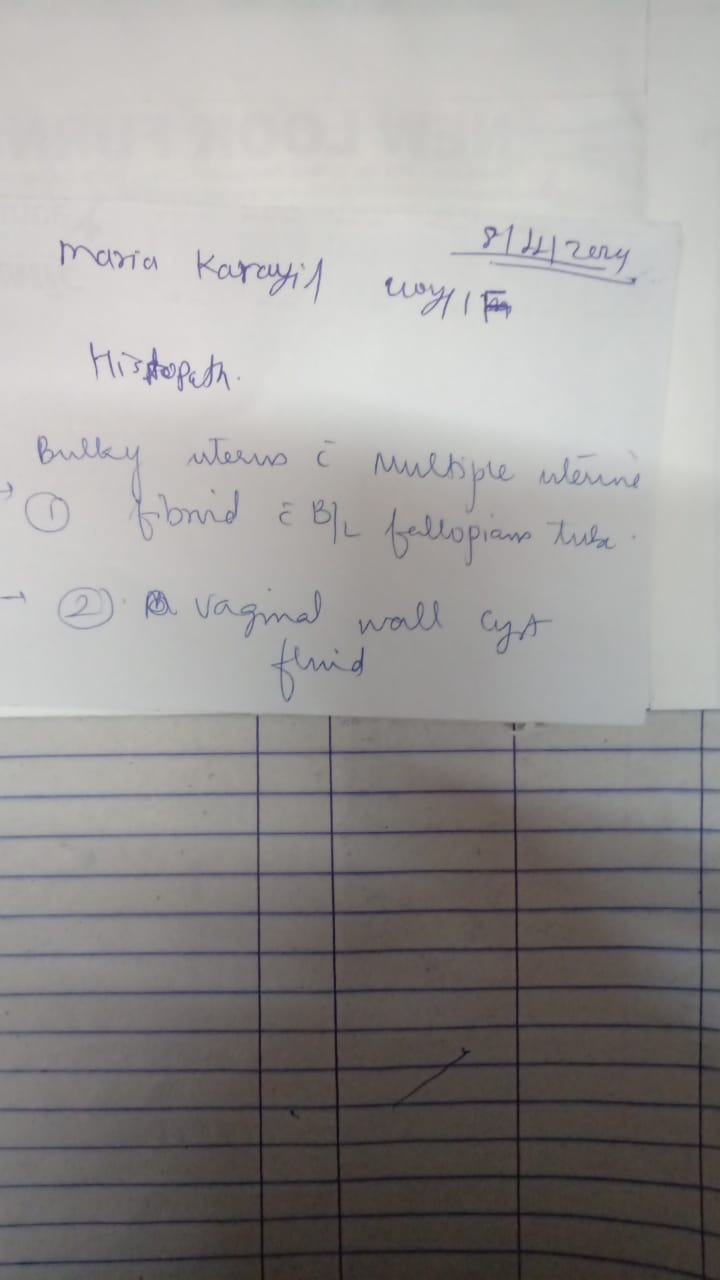 Maria Karayil
F
Histopath.
Bulky uterus c̄ multiple uterine
→ ① fibroid c̄ B/L fallopians tube.
→ ② vaginal wall cyst
fluid